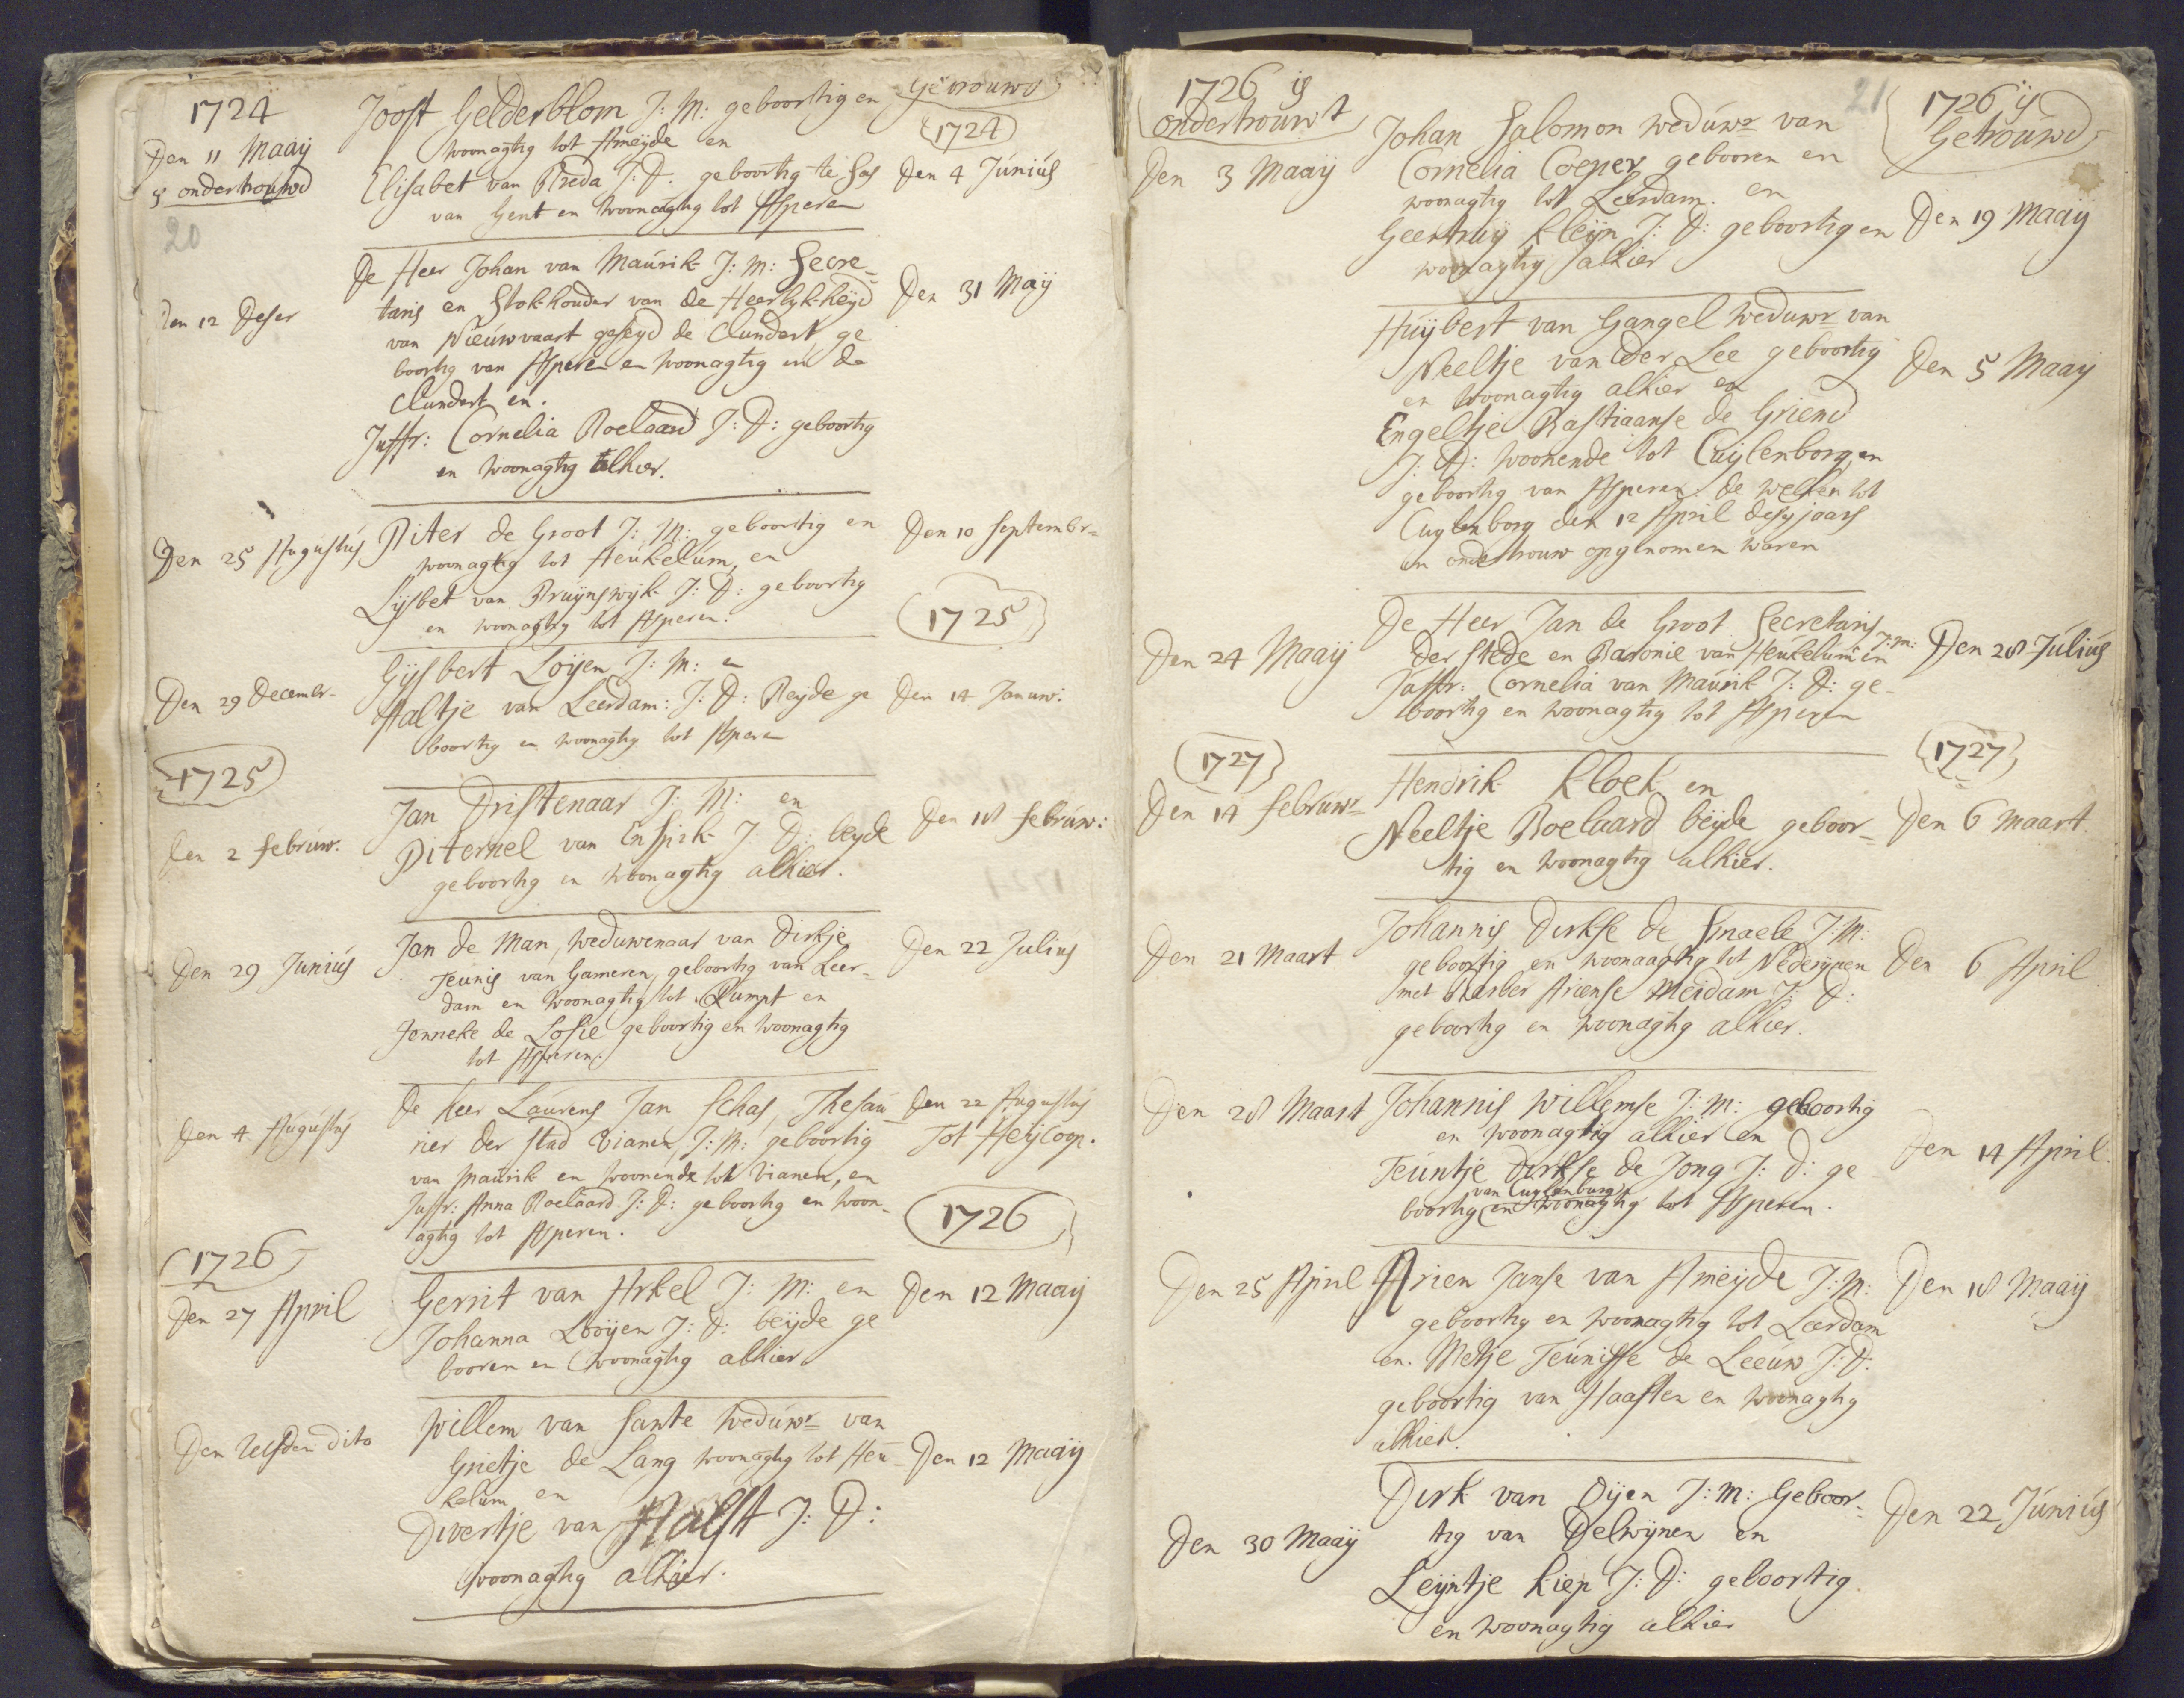 1724
Den 11 Maaij
is ondertrouwd
20
Joost Gelderblom J: M: geboortig en
woonagtig tot Ameijde en
Elisabet van Breda J: D: geboortig te Sas
van Gent en woonagtig tot Asperen
Getrouwd
1724
Den 4 Júniús
Den 12 Deser
De Heer Johan van Maúrik J: M: Secre-
taris en Stokhouder van de Heerlyk-heyd
van Nieúwvaart geseyd de Clundert, ge
boortig van Asperen en woonagtig in de
Clundert en.
Juffr: Cornelia Roelaard J: D: geboortig
en woonagtig alhier.
Den 31 Maij
Den 25 Augustús
Piter de Groot J: M: geboortig en
woonagtig tot Heúkelum, en
Lysbet van Brúynswijk J: D: geboortig
en woonagtig tot Asperen.
Den 10 Septembr=
1725
Den 29 Decembr-
Gysbert Loijen J: M: en
Aaltje van Leerdam: J: D: Beyde ge
boortig en woonagtig tot Asperen
Den 14 Januw:
1725
Den 2 febrúw.
Jan Dristenaar J: M: en
Piternel van Enspik J: D: beyde
geboortig en woonagtig alhier.
Den 18 febrúw:
Den 29 Juniús
Jan de Man, weduwenaar van Dirkje
Teunis van Gameren, geboortig van Leer-
dam en woonagtig tot Rumpt en
Jenneke de Losie geboortig en woonagtig
tot Asperen.
Den 22 Juliús
Den 4 Aúgústús
De heer Laúrens Jan Schas, Thesaú-
rier der stad Vianen, J: M: geboortig
van Maúrik en woonende tot Vianen, en
Juffr: Anna Roelaard J: D: geboortig en woon-
agtig tot Asperen.
Den 22 Augustús
Tot Heijcoop.
1726
1726
Den 27 April
Gerrit van Arkel J: M: en
Johanna Looijen J: D: beijde ge
booren en woonagtig alhier
Den 12 Maaij
Den selfden dito
Willem van Sante wedúwr van
Grietje de Lang woonagtig tot Heú-
kelum en
Divertje van Aalst J: D:
woonagtig alhier.
Den 12 Maaij
1726 is
ondertrouwt
21
1726 is
Getroúwd
Den 3 Maaij
Johan Salomon wedúwr van
Cornelia Coeper gebooren en
woonagtig tot Leerdam. en
Geertruij Kleijn J: D: geboortig en
woonagtig alhier
Den 19 Maaij
Húijbert van Gangel weduwr van
Neeltje van der Lee geboortig
en woonagtig alhier en
Engeltje Bastiaanse de Griend
J: D: woonende tot Cuylenborg en
geboortig van Asperen. de welken tot
Cuylenborg den 12 April deses jaars
in ondertrouw opgenomen waren
Den 5 Maaij
Den 24 Maaij
De Heer Jan de Groot Secretaris
J: M:
der Stede en Baronie van Heukelum en
Juffr: Cornelia van Maúrik J: D: ge-
boortig en woonagtig tot Asperen
Den 28 Júliús
1727
1727
Den 14 febrúwr
Hendrik Kloek en
Neeltje Roelaard beijde geboor-
tig en woonagtig alhier.
Den 6 Maart.
Den 21 Maart
Johannis Dirkse de Snaele J: M:
geboortig en woonaagtig tot Nederijnen
met Barber Ariense Meidam J: D:
geboortig en woonagtig alhier.
Den 6 April
Den 28 Maart
Johannis Willemse J: M: geboortig
en woonagtig alhier en
Teúntje Dirkse de Jong J: D: ge
van Cuylenburg
boortig en woonagtig tot Asperen.
Den 14 April.
Den 25 April
Arien Janse van Ameijde J: M:
geboortig en woonagtig tot Leerdam
en. Metje Teúnisse de Leeúw J: D.
geboortig van Haaften en woonagtig
alhier.
Den 18 Maaij
Den 30 Maaij
Dirk van Oijen J: M: Geboor-
tig van Delwijnen en
Leijntje Kiep J: D: geboortig
en woonagtig alhier
Den 22 Júniús